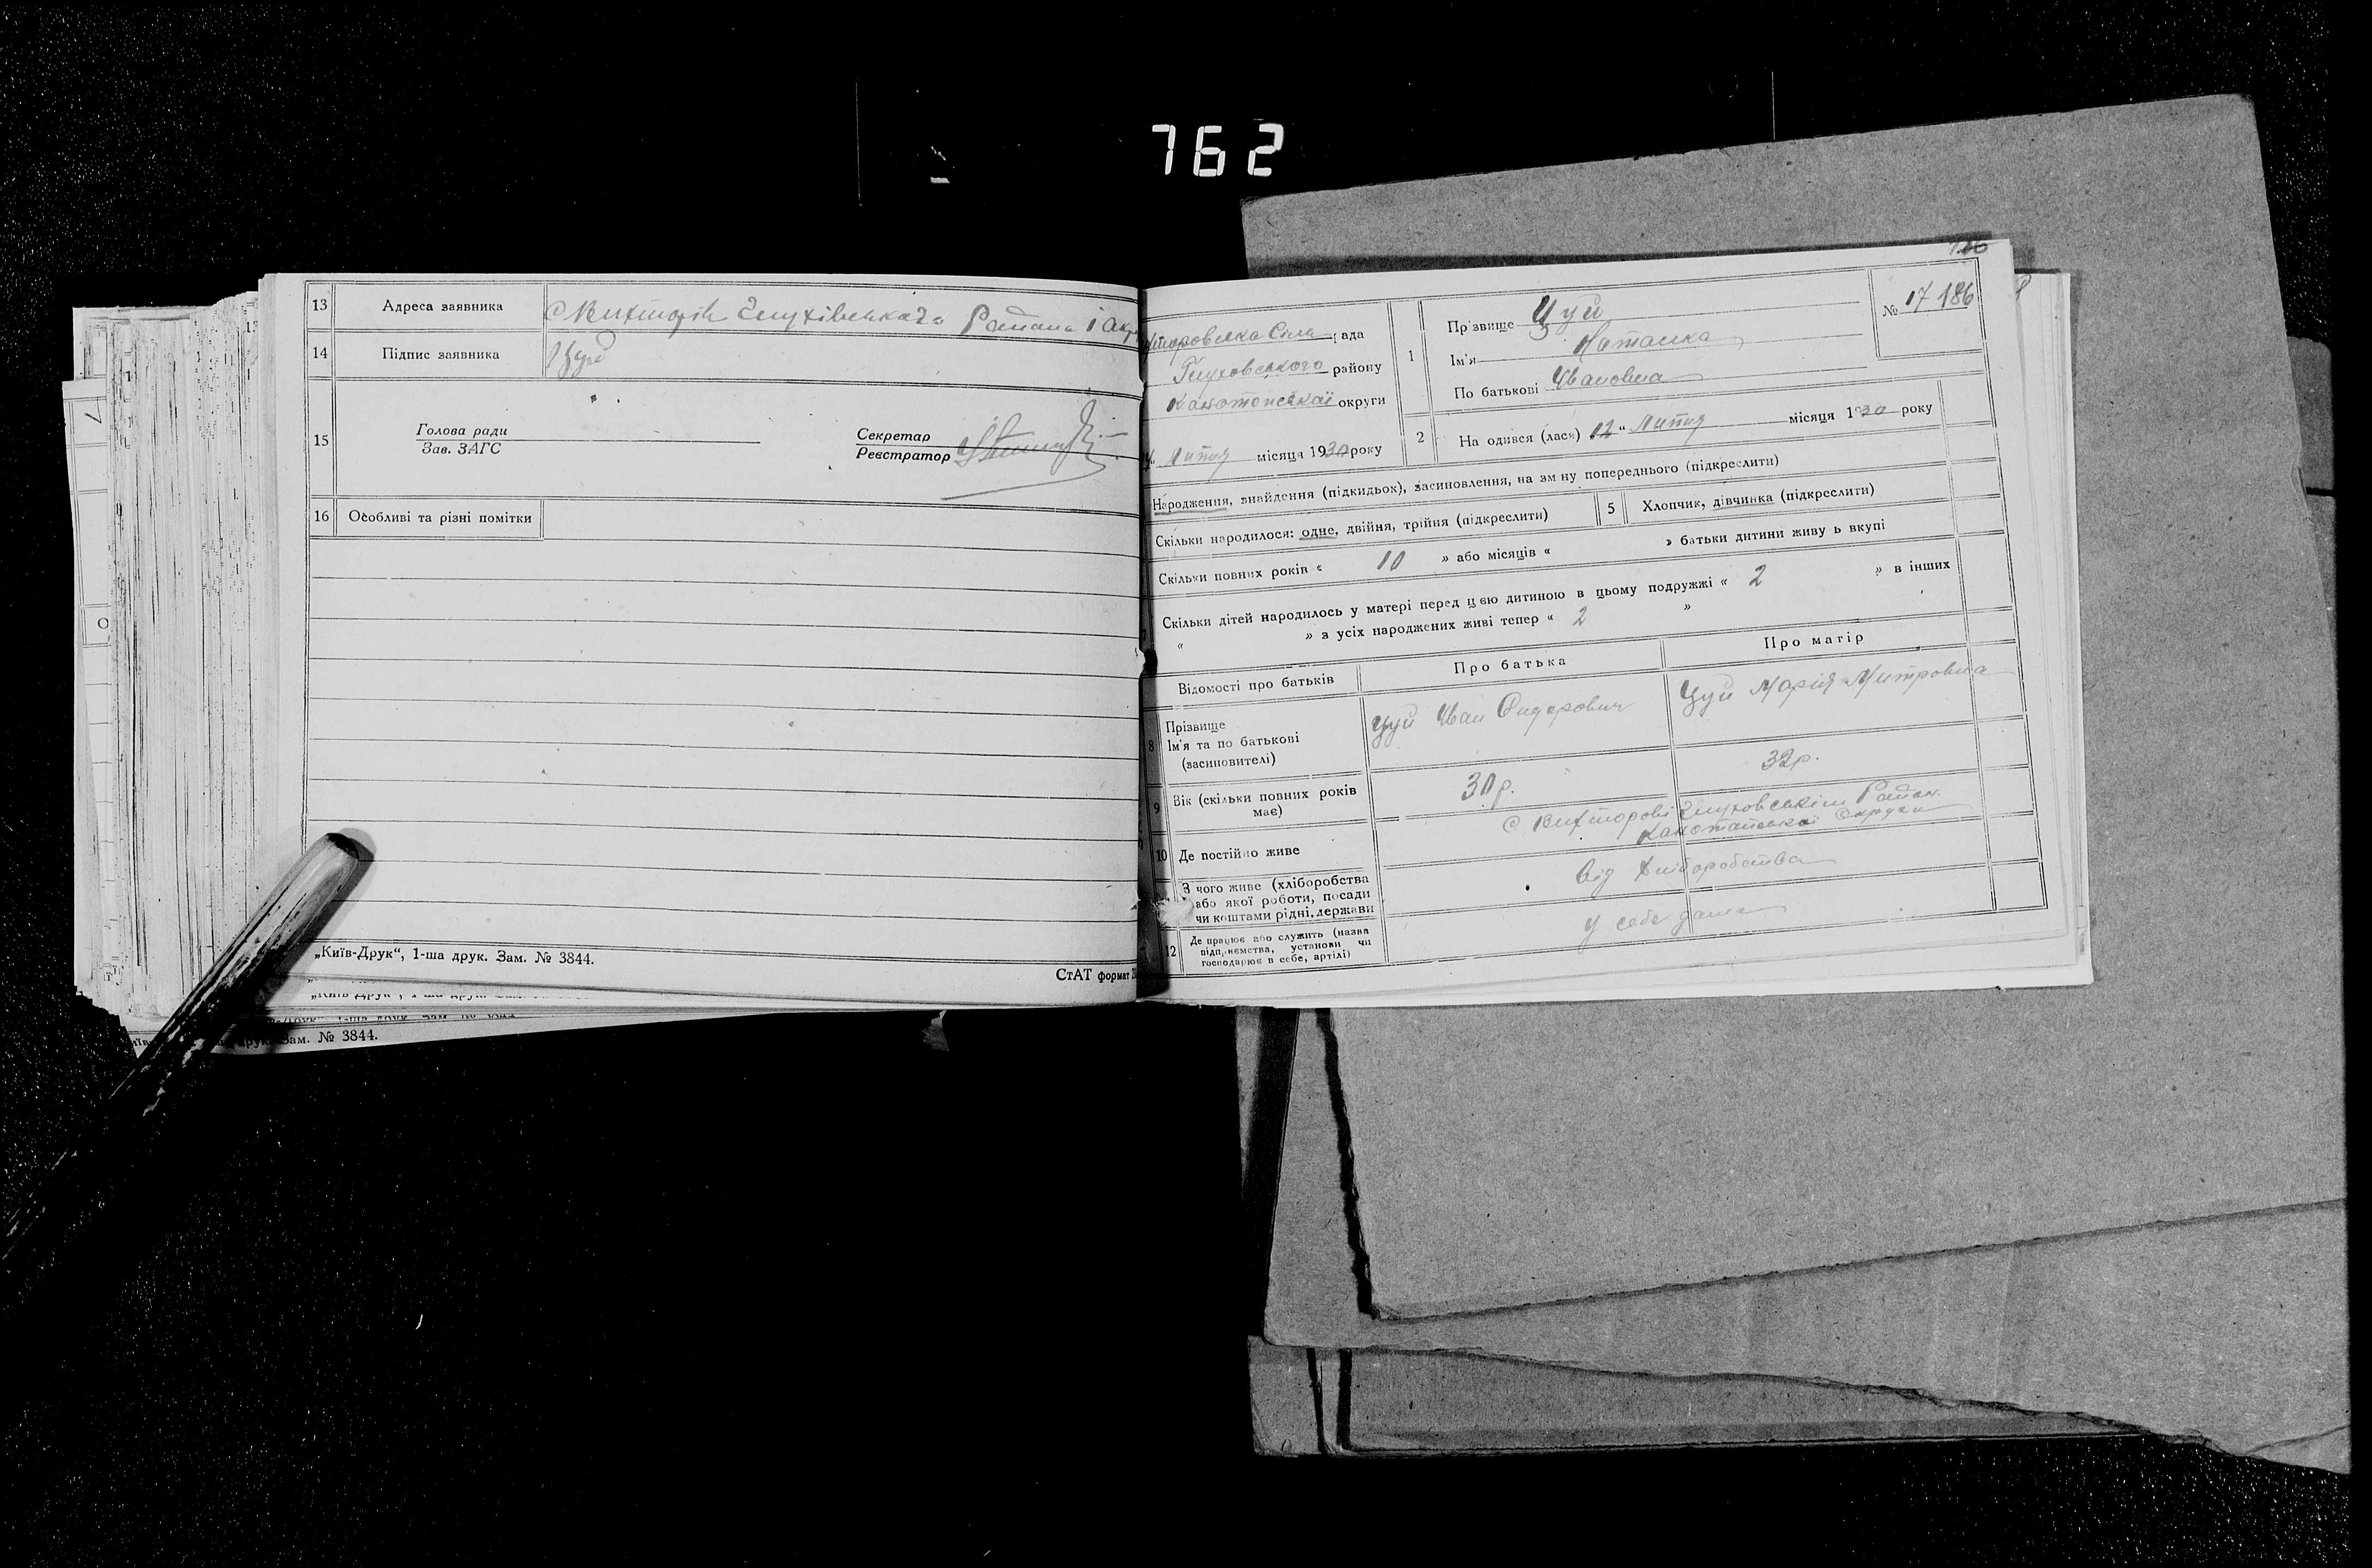 762
13 Адреса заявника
14 Підпис заявника Цуй
15 Голова ради
Зав. ЗАГС
Секретар
Реєстратор
16 Особливі та різні помітки
„Київ-Друк“, 1-ша друк. Зам. № 3844.
СтАТ формат
Зам. № 3844.
рада
Глуховського району
Конотопської округи
Липня місяця 1930 року
№ 17 186
1 Прізвище Цуй
Ім'я Наталка
По батькові Ивановна
2 На одився (лася) 12 “ Липня місяця 1930 року
Народження, знайдення (підкидьок), засиновлення, на зм ну попереднього (підкреслити)
Скільки народилося: одне, двійня, трійня (підкреслити)
5 Хлопчик, дівчинка (підкреслити)
Скільки повних років « 10 » або місяців « » батьки дитини живу ь вкупі
Скільки дітей народилось у матері перед цією дитиною в цьому подружжі « 2 » в інших
« » з усіх народжених живі тепер « 2 »
Відомості про батьків
Про батька
Про матір
8 Прізвище
Ім'я та по батькові
(засиновителі)
Цуй Иван Сидорович
Цуй Марія Митровна
9 Вік (скільки повних років
має)
30 р.
32 р.
10 Де постійно живе
З чого живе (хліборобства
або якої роботи, посади
чи коштами рідні, держави
Від хліборобства
12 Де працює або служить (назва
підприємства, установи чи
господарює в себе, артілі)
У себе дома